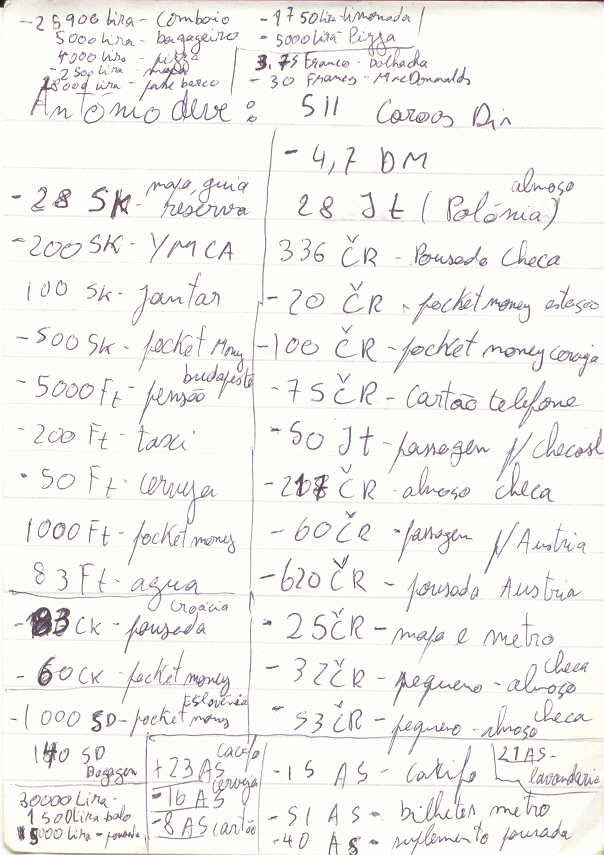 -25906 Lira - Comboio
5000 Lira - bagageiro
4000 Lira - pizza
-2500 Lira - mapa
18000 Lira - barco
-1750 Lira - limonada
-5000 Lira Pizza
3.75 Franco - bolhacha
-30 Francos - MacDonnalds
António deve: 511 Coroas Din
- 4,7 DM
-28 SK - mapa, guia
reserva
-200 SK - YMCA
100 SK - Jantar
-500 SK - pocket Money
budapeste
-5000 Ft - pensão
-200 Ft - taxi
-50 Ft - cerveja
1000 Ft - pocket money
83 Ft - agua
Croácia
83 CK - pousada
-60 CK - pocket money
Eslovénia
-1000 SD - pocket money
140 SD
Bagagem
30000 Lira -
1500 Lira bolo
15000 Lira - pousada
almoso
28 Jt (Polónia)
336 ČR - Pousada Checa
-20 ČR - pocket money estação
-100 ČR - pocket money cerveja
-75 ČR - Cartão telefone
-50 Jt - passagem p/ checosl
-217 ČR - almoso checa
-60 ČR - passagem p/ Austria
-620 ČR - pousada Austria
-25 ČR - mapa e metro
-32 ČR - pequeno-almoso checa
-53 ČR - pequeno-almoso checa
+23 AS cacifo
cerveja
-16 AS
-8 AS cartão
-15 AS - cacifo
21 AS -
lavandaria
-51 AS - bilhetes metro
-40 AS - suplemento pousada